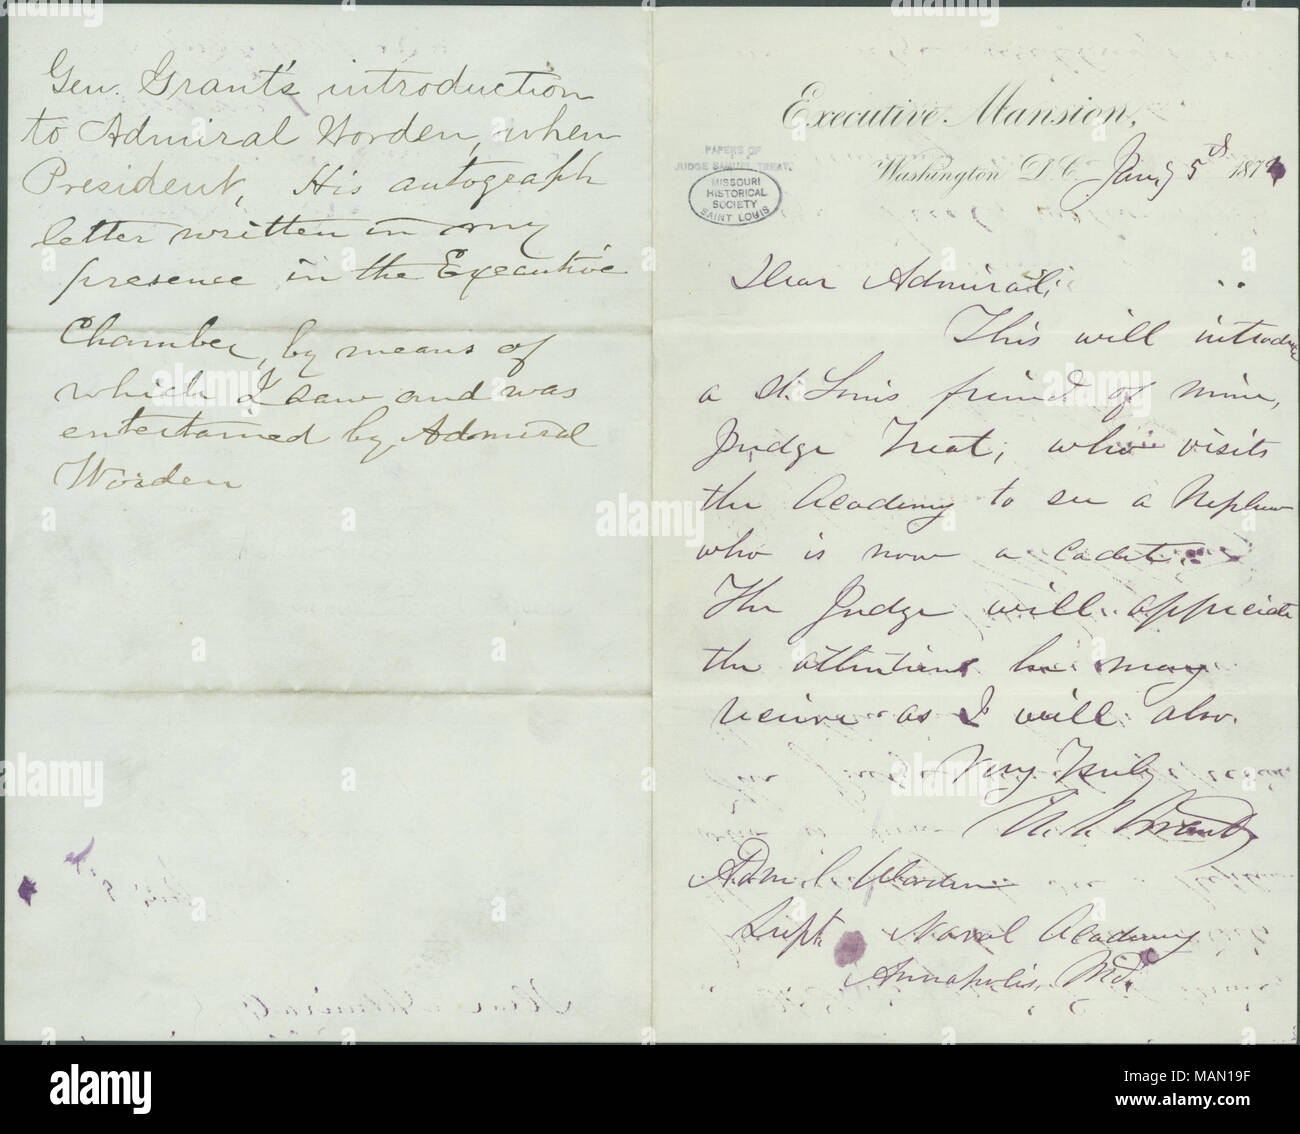 Gen. Grant's introduction
to Admiral Worden, when
President, His autograph
letter written in my
presence in the Executive
Chamber, by means of
which I saw and was
entertained by Admiral
Worden
Executive Mansion,
Washington D.C. Jany 5th 187
PAPERS OF
JUDGE SAMUEL TREAT.
MISSOURI
HISTORICAL
SOCIETY
SAINT LOUIS
Dear Admiral;
This will introduce
a St. Louis friend of mine,
Judge Treat, who visits
the Academy to see a Nephew
who is now a Cadet.
The Judge will appreciate
the attentions he may
receive as I will also.
Very Truly
U. S. Grant
Adm'l Worden
Supt. Naval Academy
Annapolis, Md.
alamy
Image ID: MAN19F
www.alamy.com